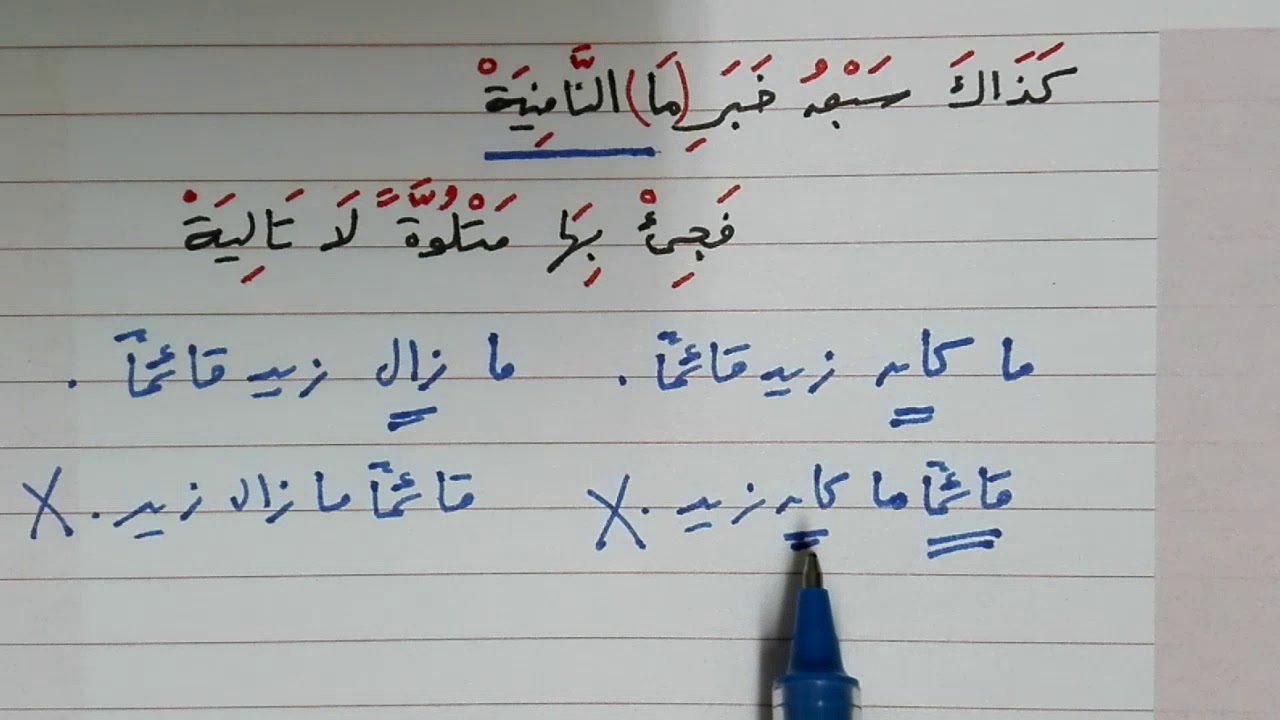 كَذَاكَ سَبْقُ خَبَرٍ (مَا) النَّافِيَةْ
فَجِئْ بِهَا مَتْلُوَّةً لَا تَالِيَةْ
ما كان زيد قائمًا . ما زال زيد قائمًا .
قائمًا ما كان زيد . X قائمًا ما زال زيد . X